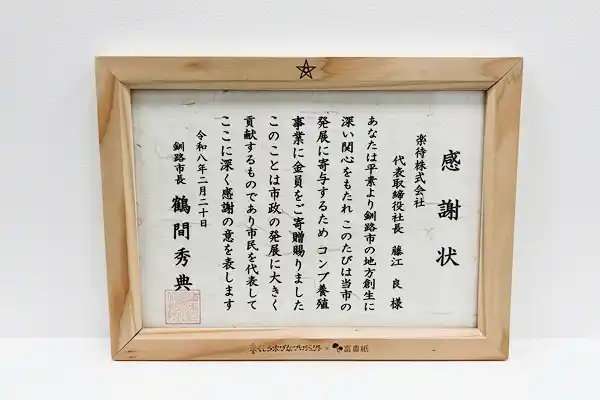 感謝状
楽待株式会社
代表取締役社長 藤江 良 様
あなたは平素より釧路市の地方創生に
深い関心をもたれ このたびは当市の
発展に寄与するため コンブ養殖
事業に金員をご寄贈賜りました
このことは市政の発展に大きく
貢献するものであり市民を代表して
ここに深く感謝の意を表します
令和八年二月二十日
釧路市長 鶴間秀典
富貴紙